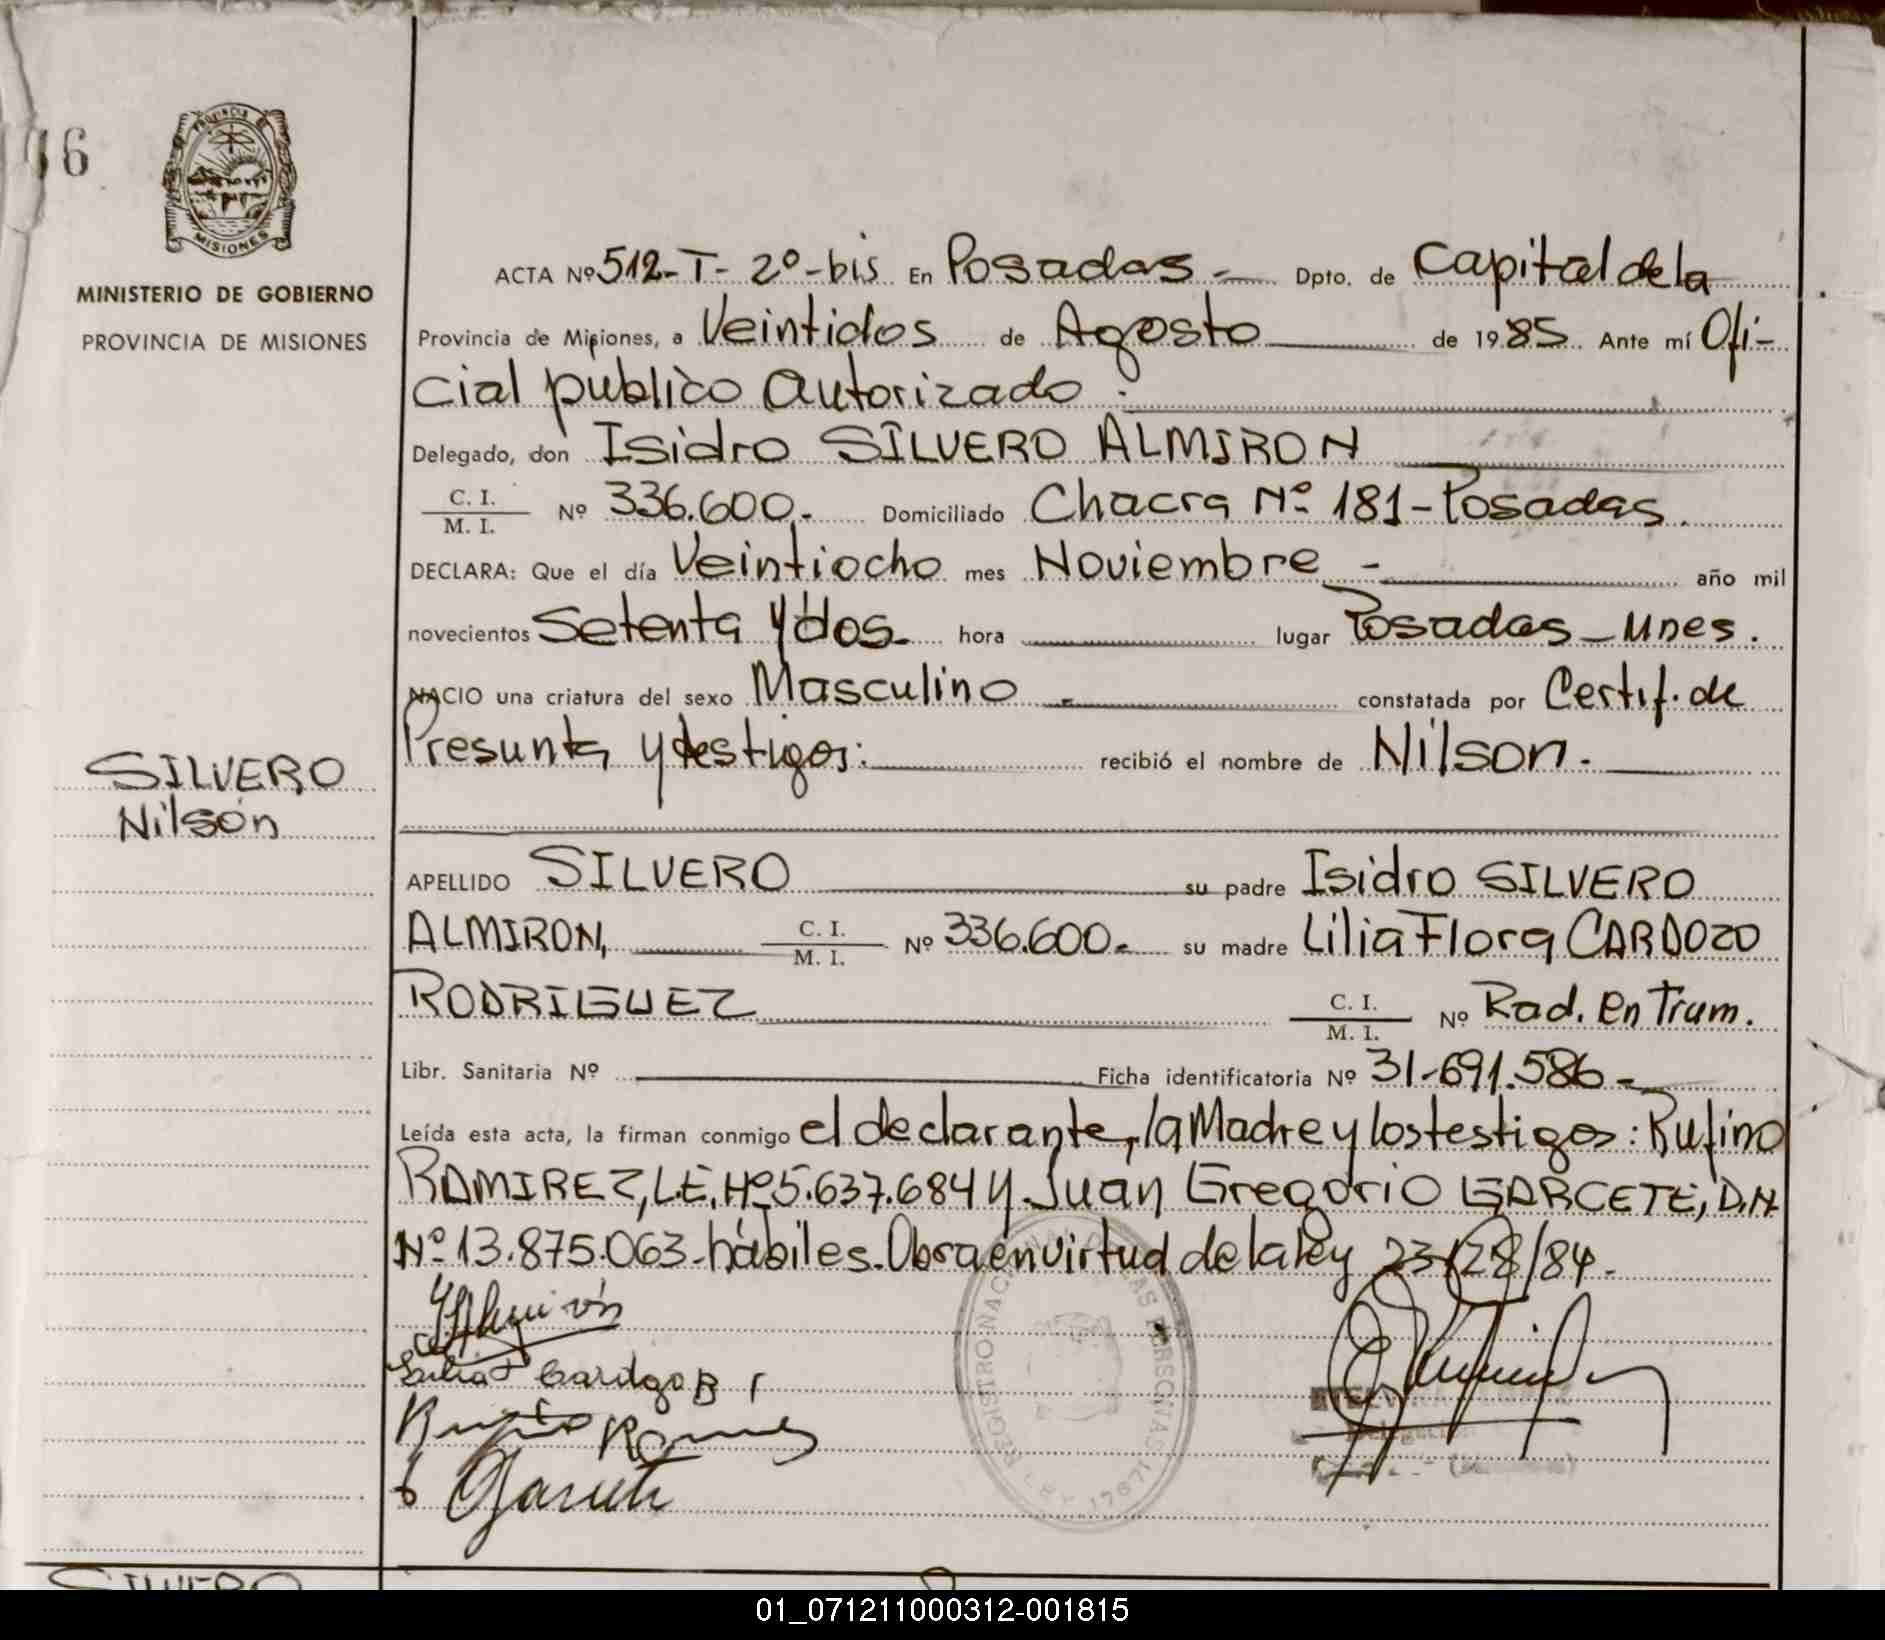 16
PROVINCIA DE
MISIONES
MINISTERIO DE GOBIERNO
PROVINCIA DE MISIONES
SILVERO
Nilson
ACTA Nº 512-T- 2º-bis En Posadas.- Dpto. de Capital de la
Provincia de Misiones, a Veintidos de Agosto de 1985. Ante mí Ofi-
cial publico Autorizado :
Delegado, don Isidro SILVERO ALMIRON
C. I.
M. I. Nº 336.600.- Domiciliado Chacra Nº 181-Posadas.
DECLARA: Que el día Veintiocho mes Noviembre - año mil
novecientos Setenta y dos. hora lugar Posadas-Mnes.
NACIO una criatura del sexo Masculino - constatada por Certif. de
Presunta y testigos: recibió el nombre de Nilson.
APELLIDO SILVERO su padre Isidro SILVERO
ALMIRON, C. I.
M. I. Nº 336.600.- su madre Lilia Flora CARDOZO
RODRIGUEZ C. I.
M. I. Nº Rad. En Tram.
Libr. Sanitaria Nº Ficha identificatoria Nº 31-691.586-
Leída esta acta, la firman conmigo el declarante, la Madre y los testigos: Rufino
RAMIREZ, L.E. Nº 5.637.684 y Juan Gregorio GARCETE, D.N.
Nº 13.875.063-hábiles. Obra en virtud de la ley 23128/84.
REGISTRO NACIONAL DE LAS PERSONAS
LEY 17671
SILVERO
01_071211000312-001815